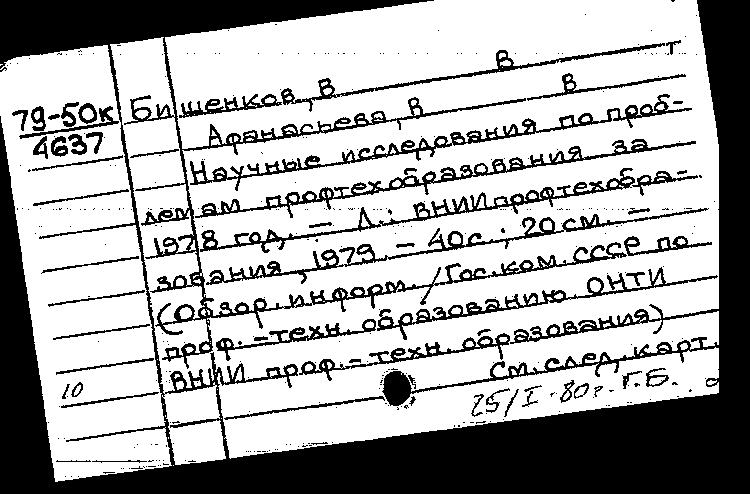 79-50к
4637
Бишенков, В В т
Афанасьева, В В
Научные исследования по проб-
лемам профтехобразования за
1978 год. — Л.: ВНИИпрофтехобра-
зования, 1979. — 40с.; 20см. —
(Обзор. информ. / Гос. ком. СССР по
проф.-техн. образованию. ОНТИ
ВНИИ проф.-техн. образования)
См. след. карт.
10
25/I-80г. Г.Б.